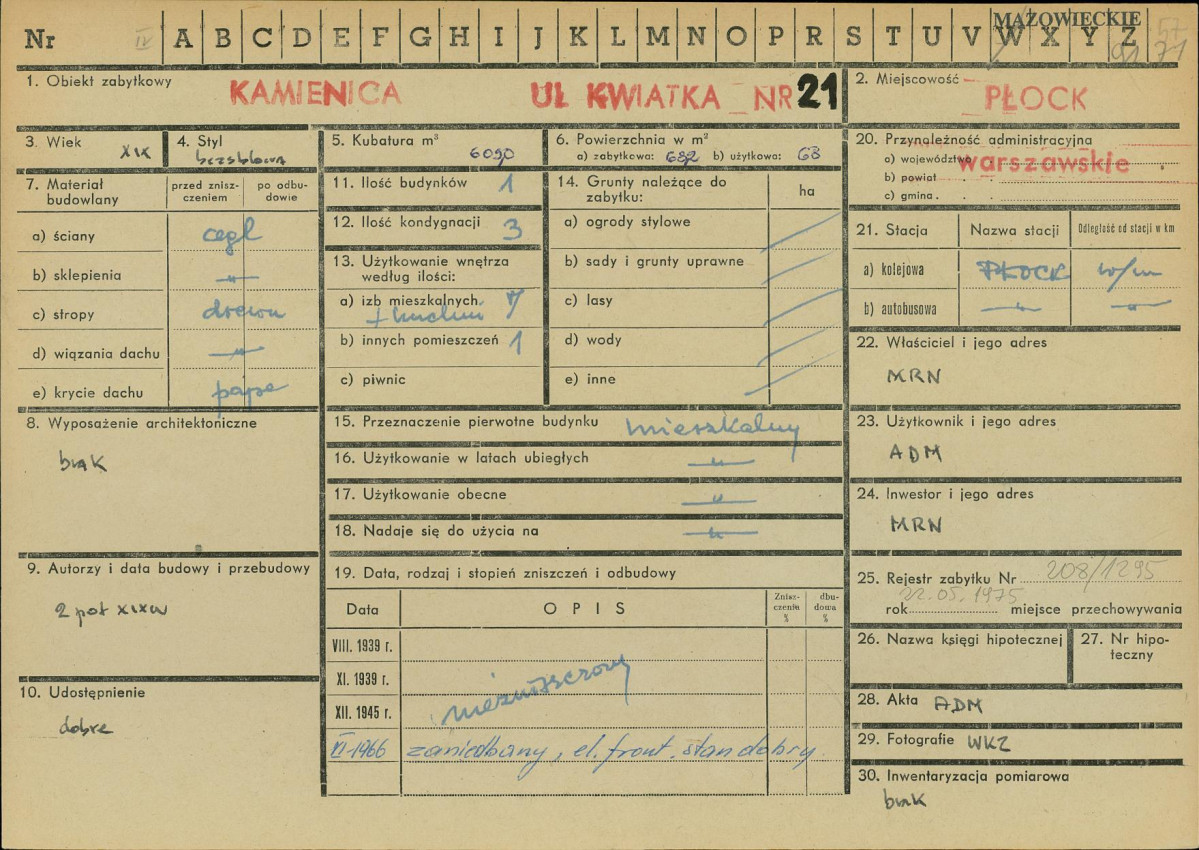 MAZOWIECKIE
Nr IV A B C D E F G H I J K L M N O P R S T U V W X Y Z
1. Obiekt zabytkowy
KAMIENICA UL KWIATKA NR 21
2. Miejscowość
PŁOCK
3. Wiek XIX
4. Styl bezstylowa
5. Kubatura m³ 6090
6. Powierzchnia w m²
a) zabytkowa: 682 b) użytkowa: 63
20. Przynależność administracyjna
a) województwo warszawskie
b) powiat
c) gmina
7. Materiał budowlany
przed zniszczeniem
po odbudowie
a) ściany cegl
b) sklepienia -"-
c) stropy drewn
d) wiązania dachu -"-
e) krycie dachu papa
11. Ilość budynków 1
12. Ilość kondygnacji 3
13. Użytkowanie wnętrza według ilości:
a) izb mieszkalnych 7
+ kuchni
b) innych pomieszczeń 1
c) piwnic
14. Grunty należące do zabytku:
ha
a) ogrody stylowe
b) sady i grunty uprawne
c) lasy
d) wody
e) inne
21. Stacja
Nazwa stacji
Odległość od stacji w km
a) kolejowa PŁOCK w/m
b) autobusowa -"- -"-
22. Właściciel i jego adres
MRN
8. Wyposażenie architektoniczne
brak
15. Przeznaczenie pierwotne budynku mieszkalny
16. Użytkowanie w latach ubiegłych -"-
17. Użytkowanie obecne -"-
18. Nadaje się do użycia na -"-
23. Użytkownik i jego adres
ADM
24. Inwestor i jego adres
MRN
9. Autorzy i data budowy i przebudowy
2 poł XIX w
19. Data, rodzaj i stopień zniszczeń i odbudowy
Data
OPIS
Zniszczenia %
dbudowa %
VIII. 1939 r.
XI. 1939 r.
XII. 1945 r.
niezniszczony
VI-1966 zaniedbany, el. front. stan dobry
25. Rejestr zabytku Nr 208/1295
22.05.1975
rok miejsce przechowywania
26. Nazwa księgi hipotecznej
27. Nr hipoteczny
10. Udostępnienie
dobre
28. Akta ADM
29. Fotografie WKZ
30. Inwentaryzacja pomiarowa
brak